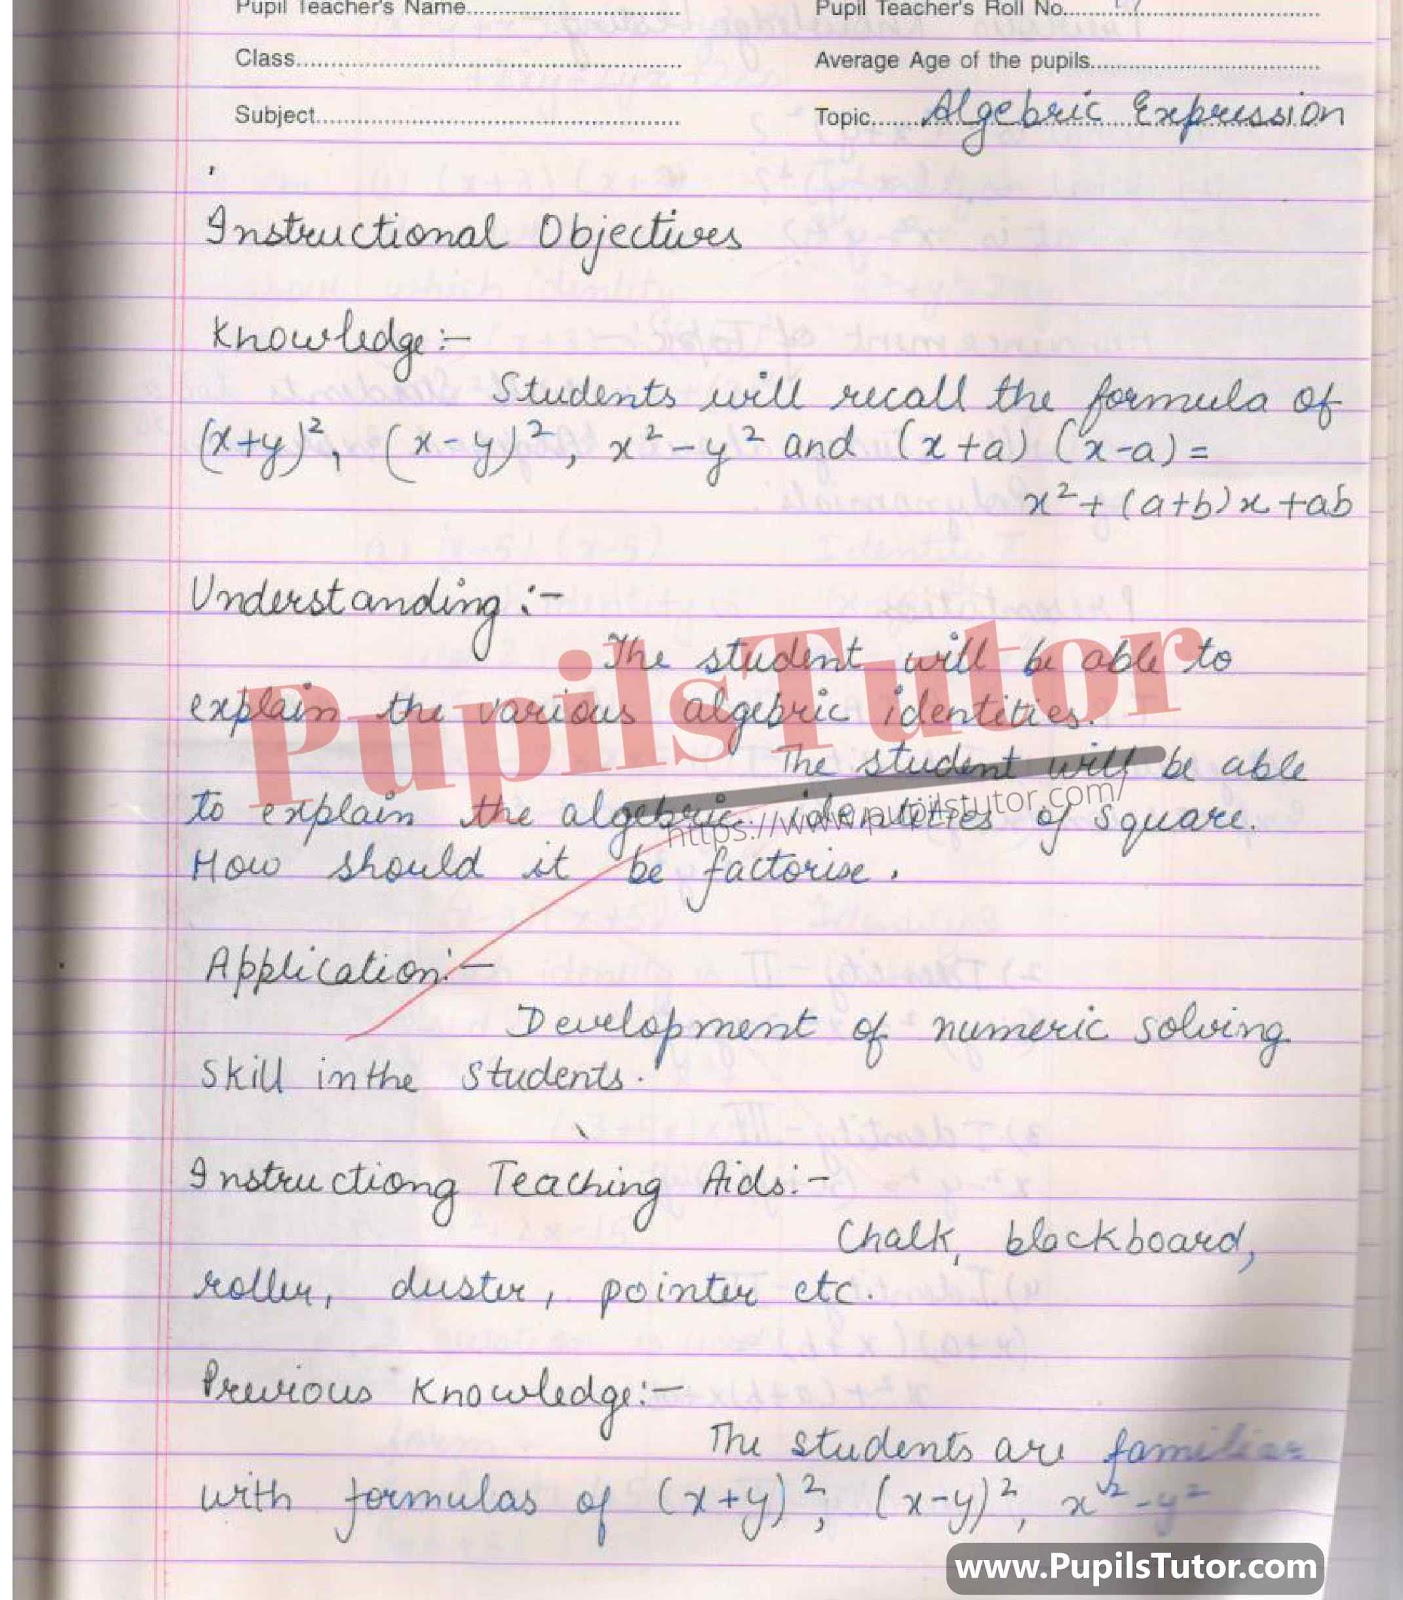 Pupil Teacher's Name..............................
Pupil Teacher's Roll No..............................
Class..............................
Average Age of the pupils..............................
Subject..............................
Topic..............................Algebric Expression
Instructional Objectives
Knowledge:-
Students will recall the formula of
(x+y)², (x-y)², x²-y² and (x+a) (x-a) =
x²+(a+b)x+ab
Understanding:-
The student will be able to
explain the various algebric identities.
The student will be able
to explain the algebric identities of square.
How should it be factorise.
Application:-
Development of numeric solving
skill in the students.
Instructiong Teaching Aids:-
Chalk, blackboard,
roller, duster, pointer etc.
Previous Knowledge:-
The students are familiar
with formulas of (x+y)², (x-y)², x²-y²
PupilsTutor
https://www.pupilstutor.com/
www.PupilsTutor.com